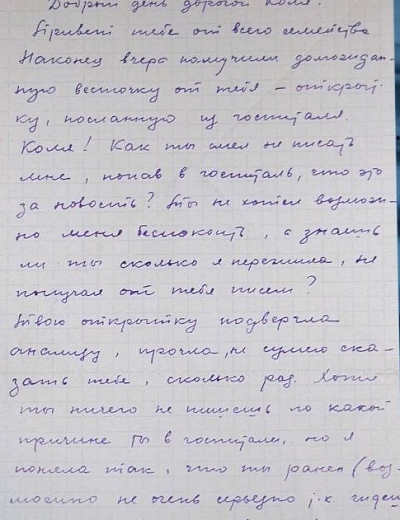 Добрый день дорогой Коля!
Привет тебе от всего семейства
Наконец вчера получили долгождан-
ную весточку от тебя – открыт-
ку, посланную из госпиталя.
Коля! Как ты смел не писать
мне, попав в госпиталь, что это
за новость? Ты не хотел возмож-
но меня беспокоить, а знаешь
ли ты сколько я пережила, не
получая от тебя писем?
Твою открытку подвергла
анализу, прочла, не сумею ска-
зать тебе, сколько раз. Хотя
ты ничего не пишешь по какой
причине ты в госпитале, но я
поняла так, что ты ранен (воз-
можно не очень серьезно т.к.